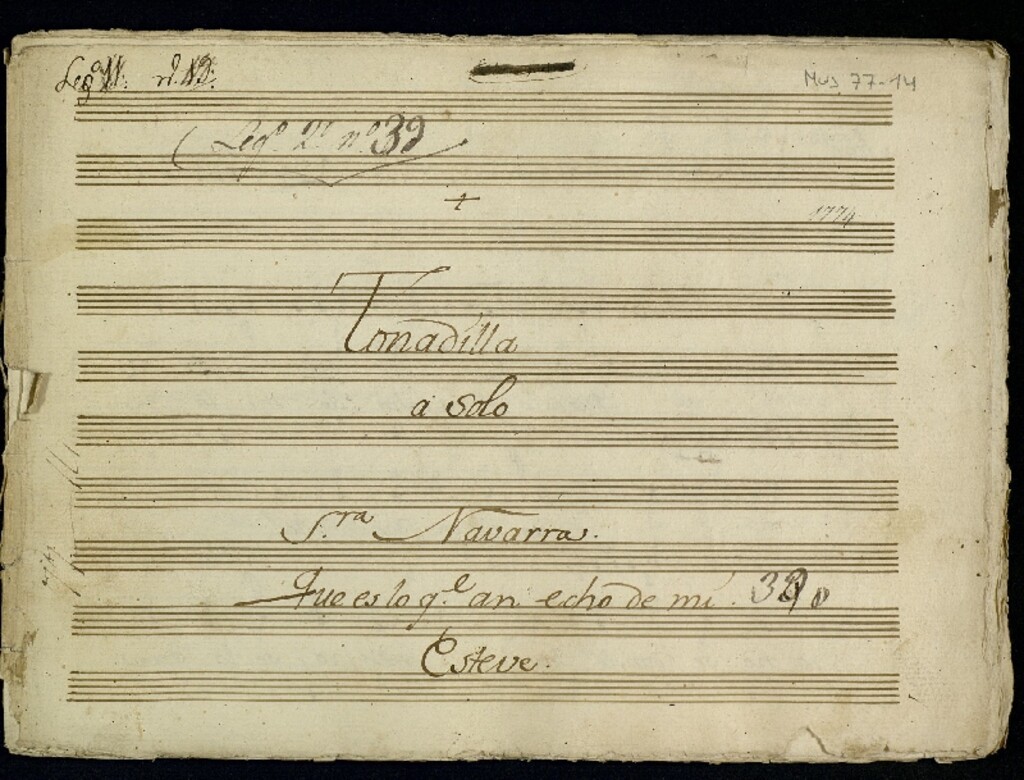 Leg.º 11. n.º 13.
Mus 77-14
Leg.º 2.º n.º 39
1774
Tonadilla
a solo
S.ra Navarra.
Que es lo q.e an echo de mi.
Esteve.